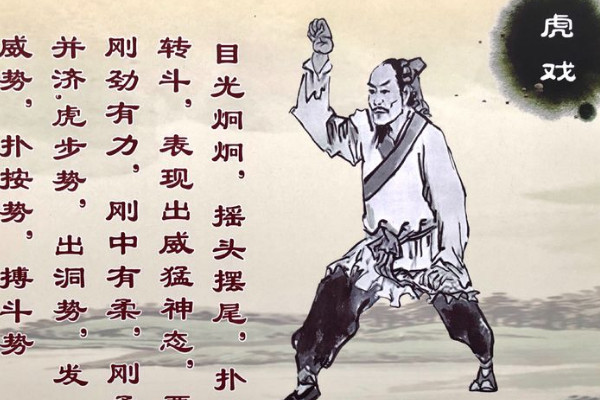 虎戏
目光炯炯，摇头摆尾，扑
转斗，表现出威猛神态，要
刚劲有力，刚中有柔，刚柔
并济.虎步势，出洞势，发
威势，扑按势，搏斗势